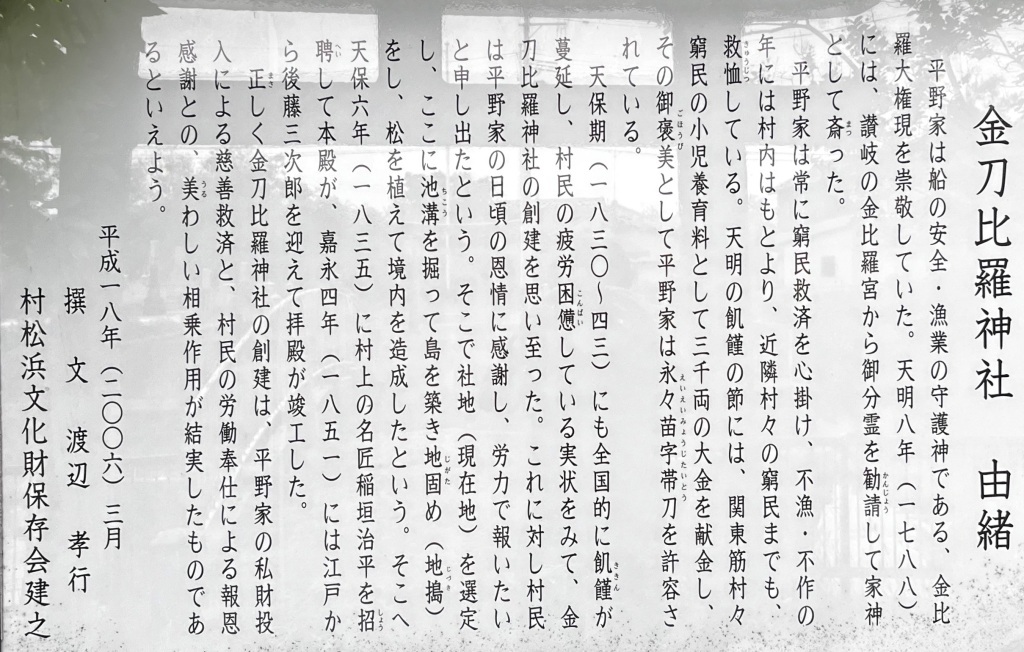 金刀比羅神社　由緒
平野家は船の安全・漁業の守護神である、金比
羅大権現を崇敬していた。天明八年（一七八八）
には、讃岐の金比羅宮から御分霊を勧請して家神
として斎った。
平野家は常に窮民救済を心掛け、不漁・不作の
年には村内はもとより、近隣村々の窮民までも、
救恤している。天明の飢饉の節には、関東筋村々
窮民の小児養育料として三千両の大金を献金し、
その御褒美として平野家は永々苗字帯刀を許容さ
れている。
天保期（一八三〇～四三）にも全国的に飢饉が
蔓延し、村民の疲労困憊している実状をみて、金
刀比羅神社の創建を思い至った。これに対し村民
は平野家の日頃の恩情に感謝し、労力で報いたい
と申し出たという。そこで社地（現在地）を選定
し、ここに池溝を掘って島を築き地固め（地搗）
をし、松を植えて境内を造成したという。そこへ
天保六年（一八三五）に村上の名匠稲垣治平を招
聘して本殿が、嘉永四年（一八五一）には江戸か
ら後藤三次郎を迎えて拝殿が竣工した。
正しく金刀比羅神社の創建は、平野家の私財投
入による慈善救済と、村民の労働奉仕による報恩
感謝との、美わしい相乗作用が結実したものであ
るといえよう。
平成一八年（二〇〇六）三月
撰　文　渡辺　孝行
村松浜文化財保存会建之